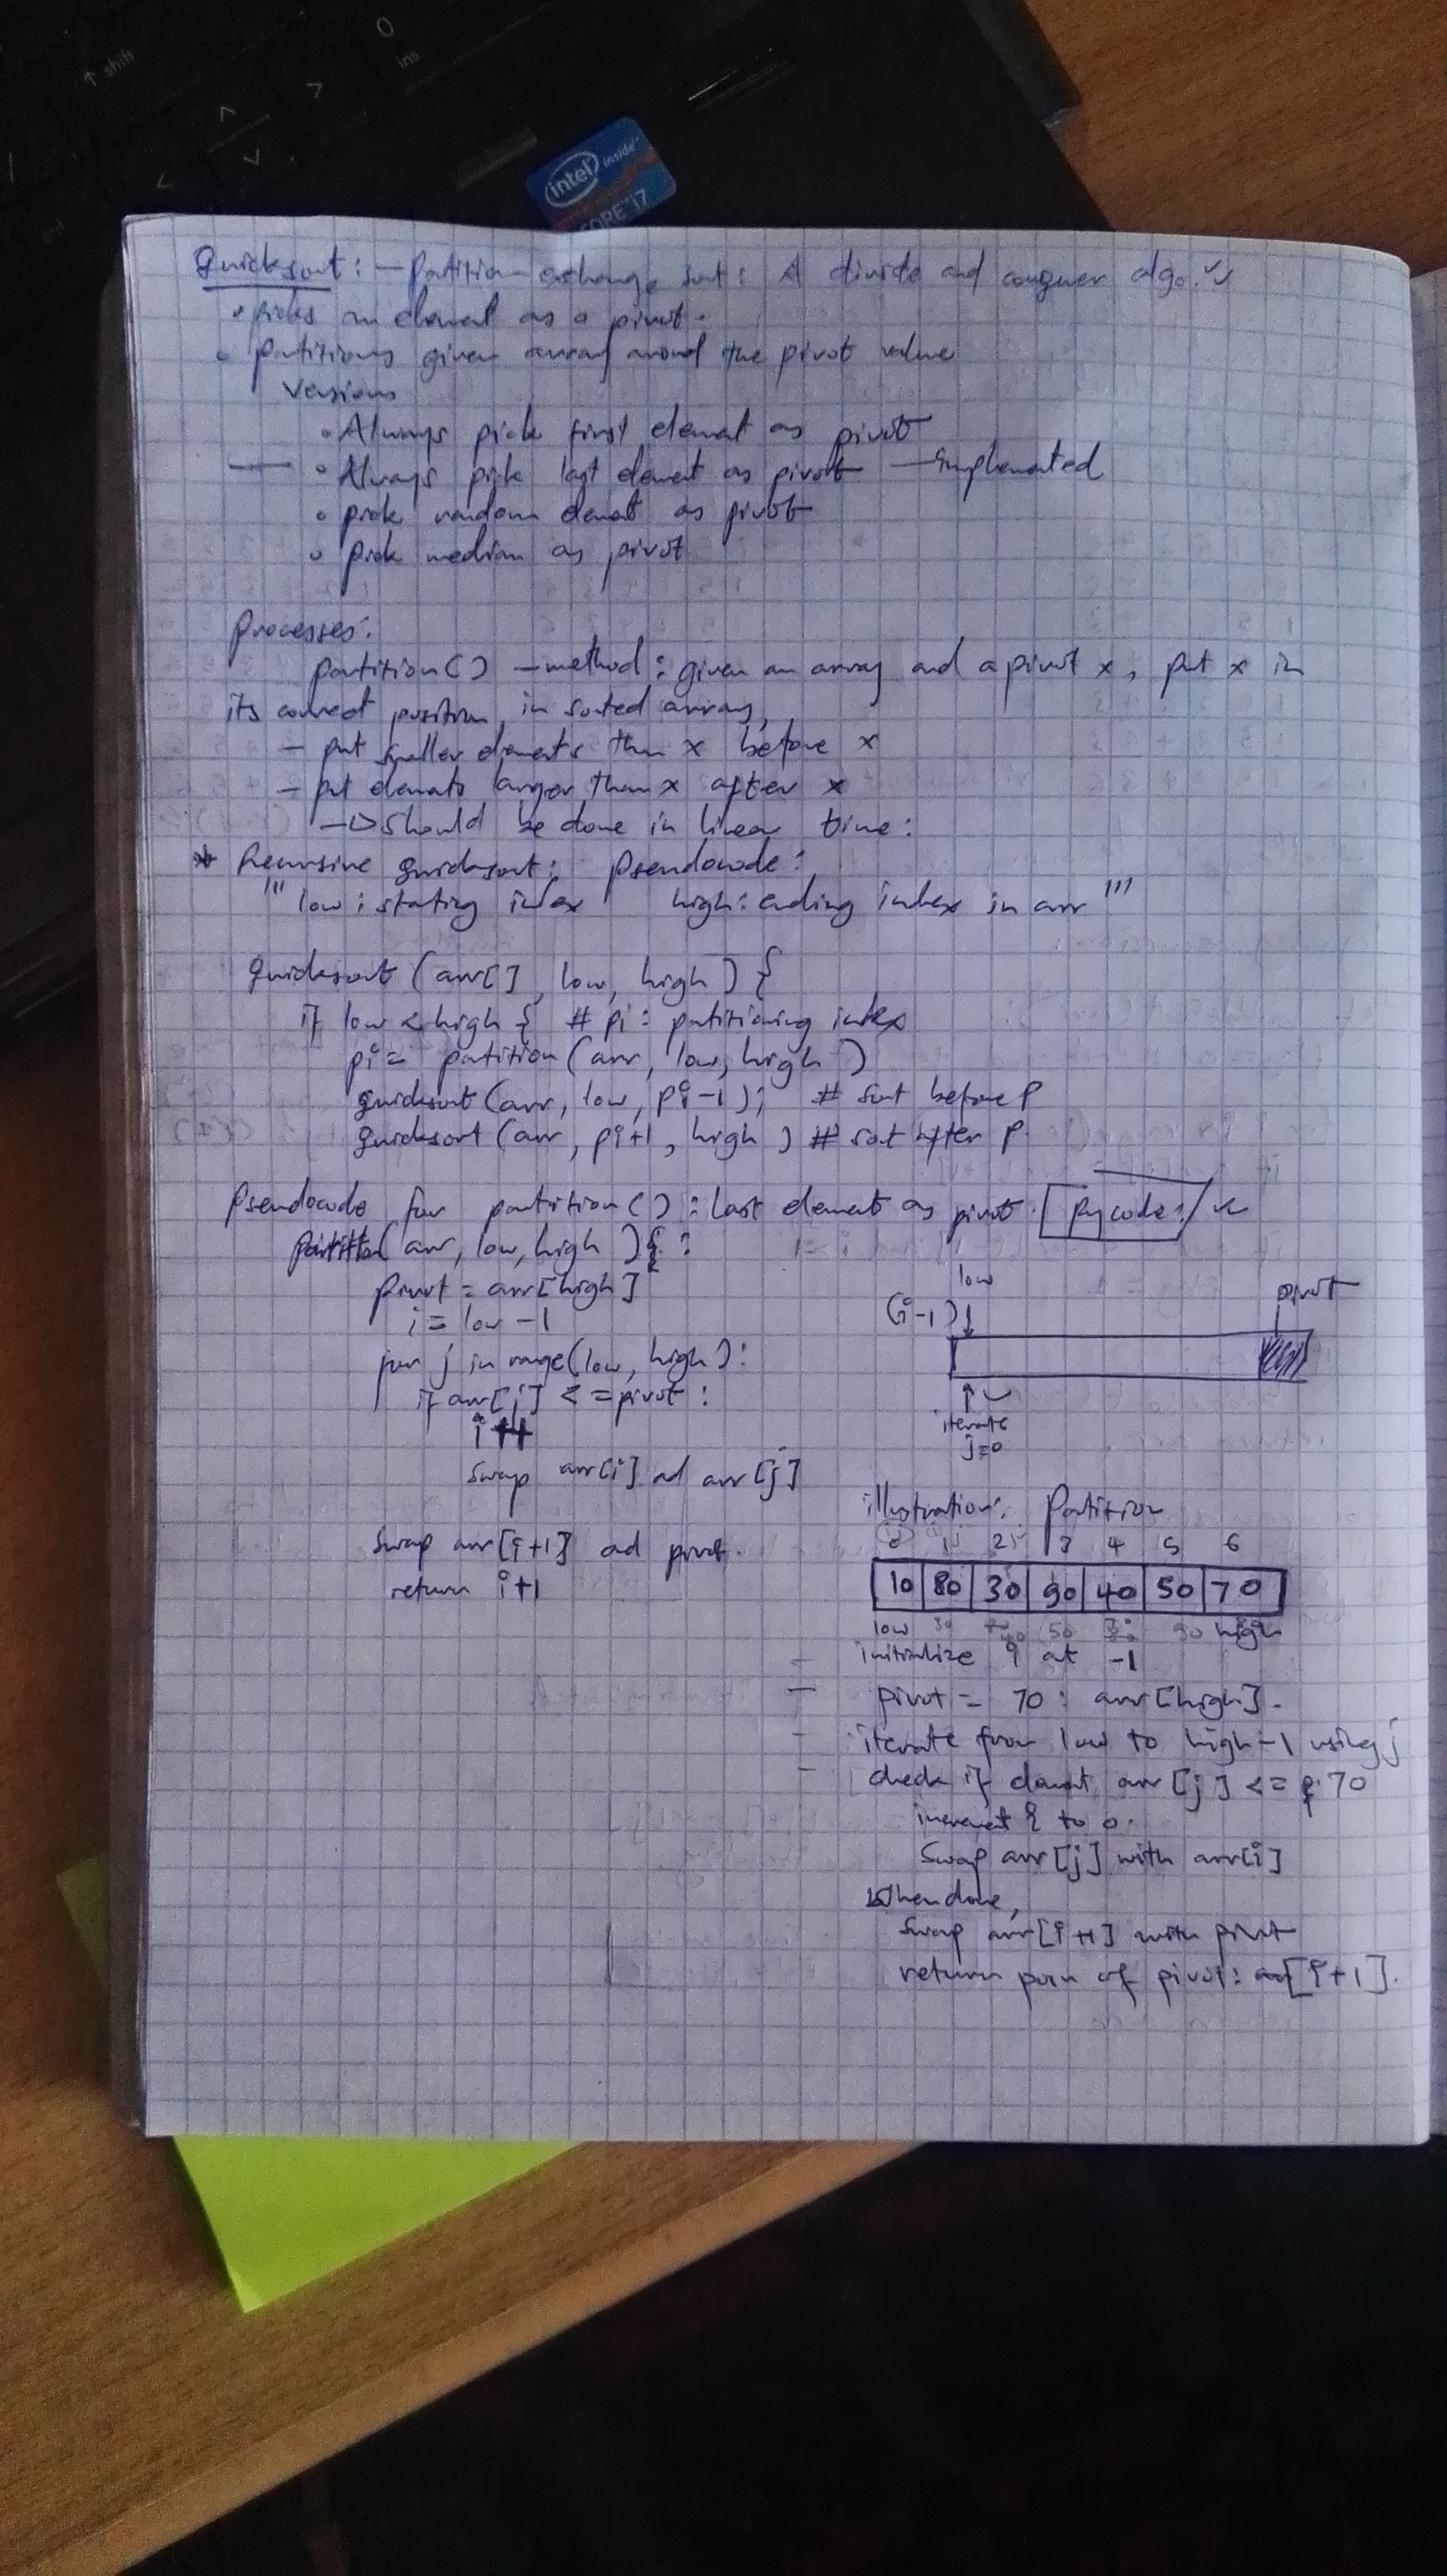 ↑ shift
0
ins
intel inside
CORE i7
Quicksort: - Partition-exchange sort: A divide and conquer algo.
• picks an element as a pivot.
• partitions given array around the pivot value
Versions
• Always pick first element as pivot
— • Always pick last element as pivot — implemented
• pick random element as pivot
• pick median as pivot
Processes:
partition() - method: given an array and a pivot x, put x in
its correct position in sorted array,
- put smaller elements than x before x
- put elements larger than x after x
-> should be done in linear time:
* Recursive quicksort: Pseudocode:
""" low: stating index high: ending index in arr """
quicksort (arr[], low, high) {
if low < high { # pi: partitioning index
pi = partition(arr, low, high)
quicksort(arr, low, pi-1); # sort before p
quicksort(arr, pi+1, high) # sort after p.
Pseudocode for partition(): last element as pivot. Pycode:
partition(arr, low, high){ :
pivot = arr[high]
i = low -1
for j in range(low, high):
if arr[j] <= pivot:
i++
swap arr[i] ad arr[j]
swap arr[i+1] ad pivot.
return i+1
low
pivot
(i-1)
iterate
j=0
illustration: Partition
0 1 2 3 4 5 6
10 80 30 90 40 50 70
low high
- initialize i at -1
- pivot = 70: arr[high].
- iterate from low to high-1 using j
- check if element arr[j] <= 70
increment i to 0.
Swap arr[j] with arr[i]
When done,
Swap arr[i+1] with pivot
return posn of pivot: [i+1].